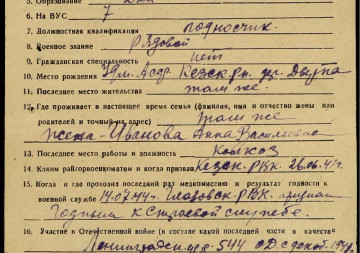 5. Образование
6. На ВУС 7
7. Должностная квалификация подносчик
8. Военное звание Рядовой
9. Гражданская специальность нет
10. Место рождения Удм. Асср. Кезск
11. Последнее место жительства там же.
12. Где проживает в настоящее время семья (фамилия, имя и отчество жены или
родителей и точный их адрес) там же
жена - Иванова Анна Васильевна
13. Последнее место работы и должность колхоз
14. Каким райгорвоенкоматом и когда призван Кезск. РВК. 26.06.41г.
15. Когда и где проходил последний раз медкомиссию и результат годности к
военной службе 14.07.44г. Глазовск. РВК признан
Годным к строевой службе.
16. Участие в Отечественной войне (в составе какой последней части в качестве
Ленинградский 544